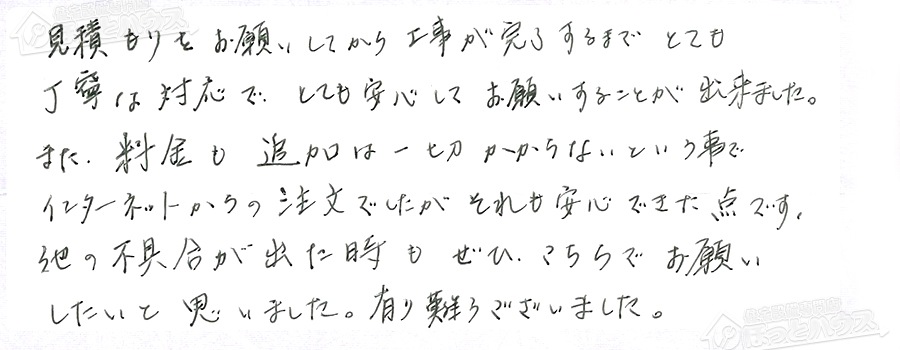 見積もりをお願いしてから工事が完了するまでとても
丁寧な対応で、とても安心してお願いすることが出来ました。
また、料金も追加は一切かからないという事で
インターネットからの注文でしたがそれも安心できた点です、
他の不具合が出た時もぜひ、こちらでお願い
したいと思いました。有り難うございました。